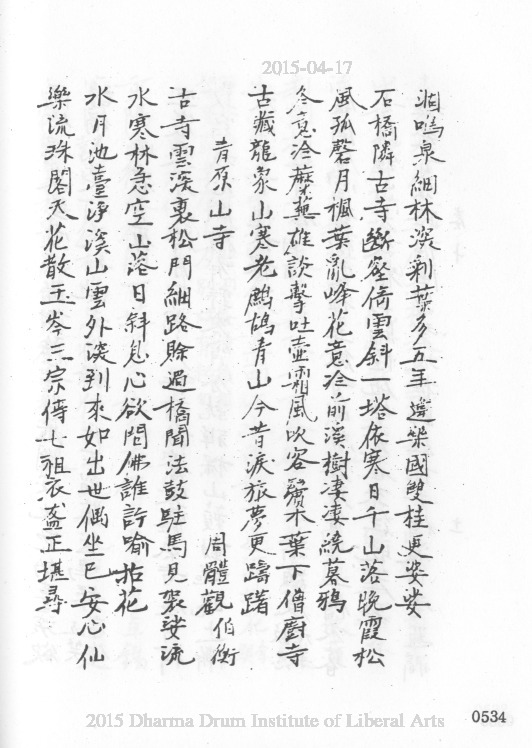 2015-04-17
涸鳴泉細林深剩葉多五年遊梁國雙桂更娑娑
石橋隣古寺斷壑倚雲斜一塔依寒日千山落晚霞松
風孤磬月楓葉亂峰花意冷前溪樹凄凄繞暮鴉
冬意冷蘼蕪雄談擊吐壺霜風吹客鬢木葉下僧廚寺
古藏龍象山寒老鷓鴣青山今昔淚旅夢更躊躇
青原山寺
周體觀 伯衡
古寺雲深裏松門細路賒過橋聞法鼓駐馬見袈裟流
水寒林急空山落日斜息心欲問佛誰許喻拈花
水月池臺淨溪山雲外談到來如出世偶坐已安心仙
樂流珠閣天花散玉岑三宗傳七祖衣盋正堪尋
2015 Dharma Drum Institute of Liberal Arts
0534